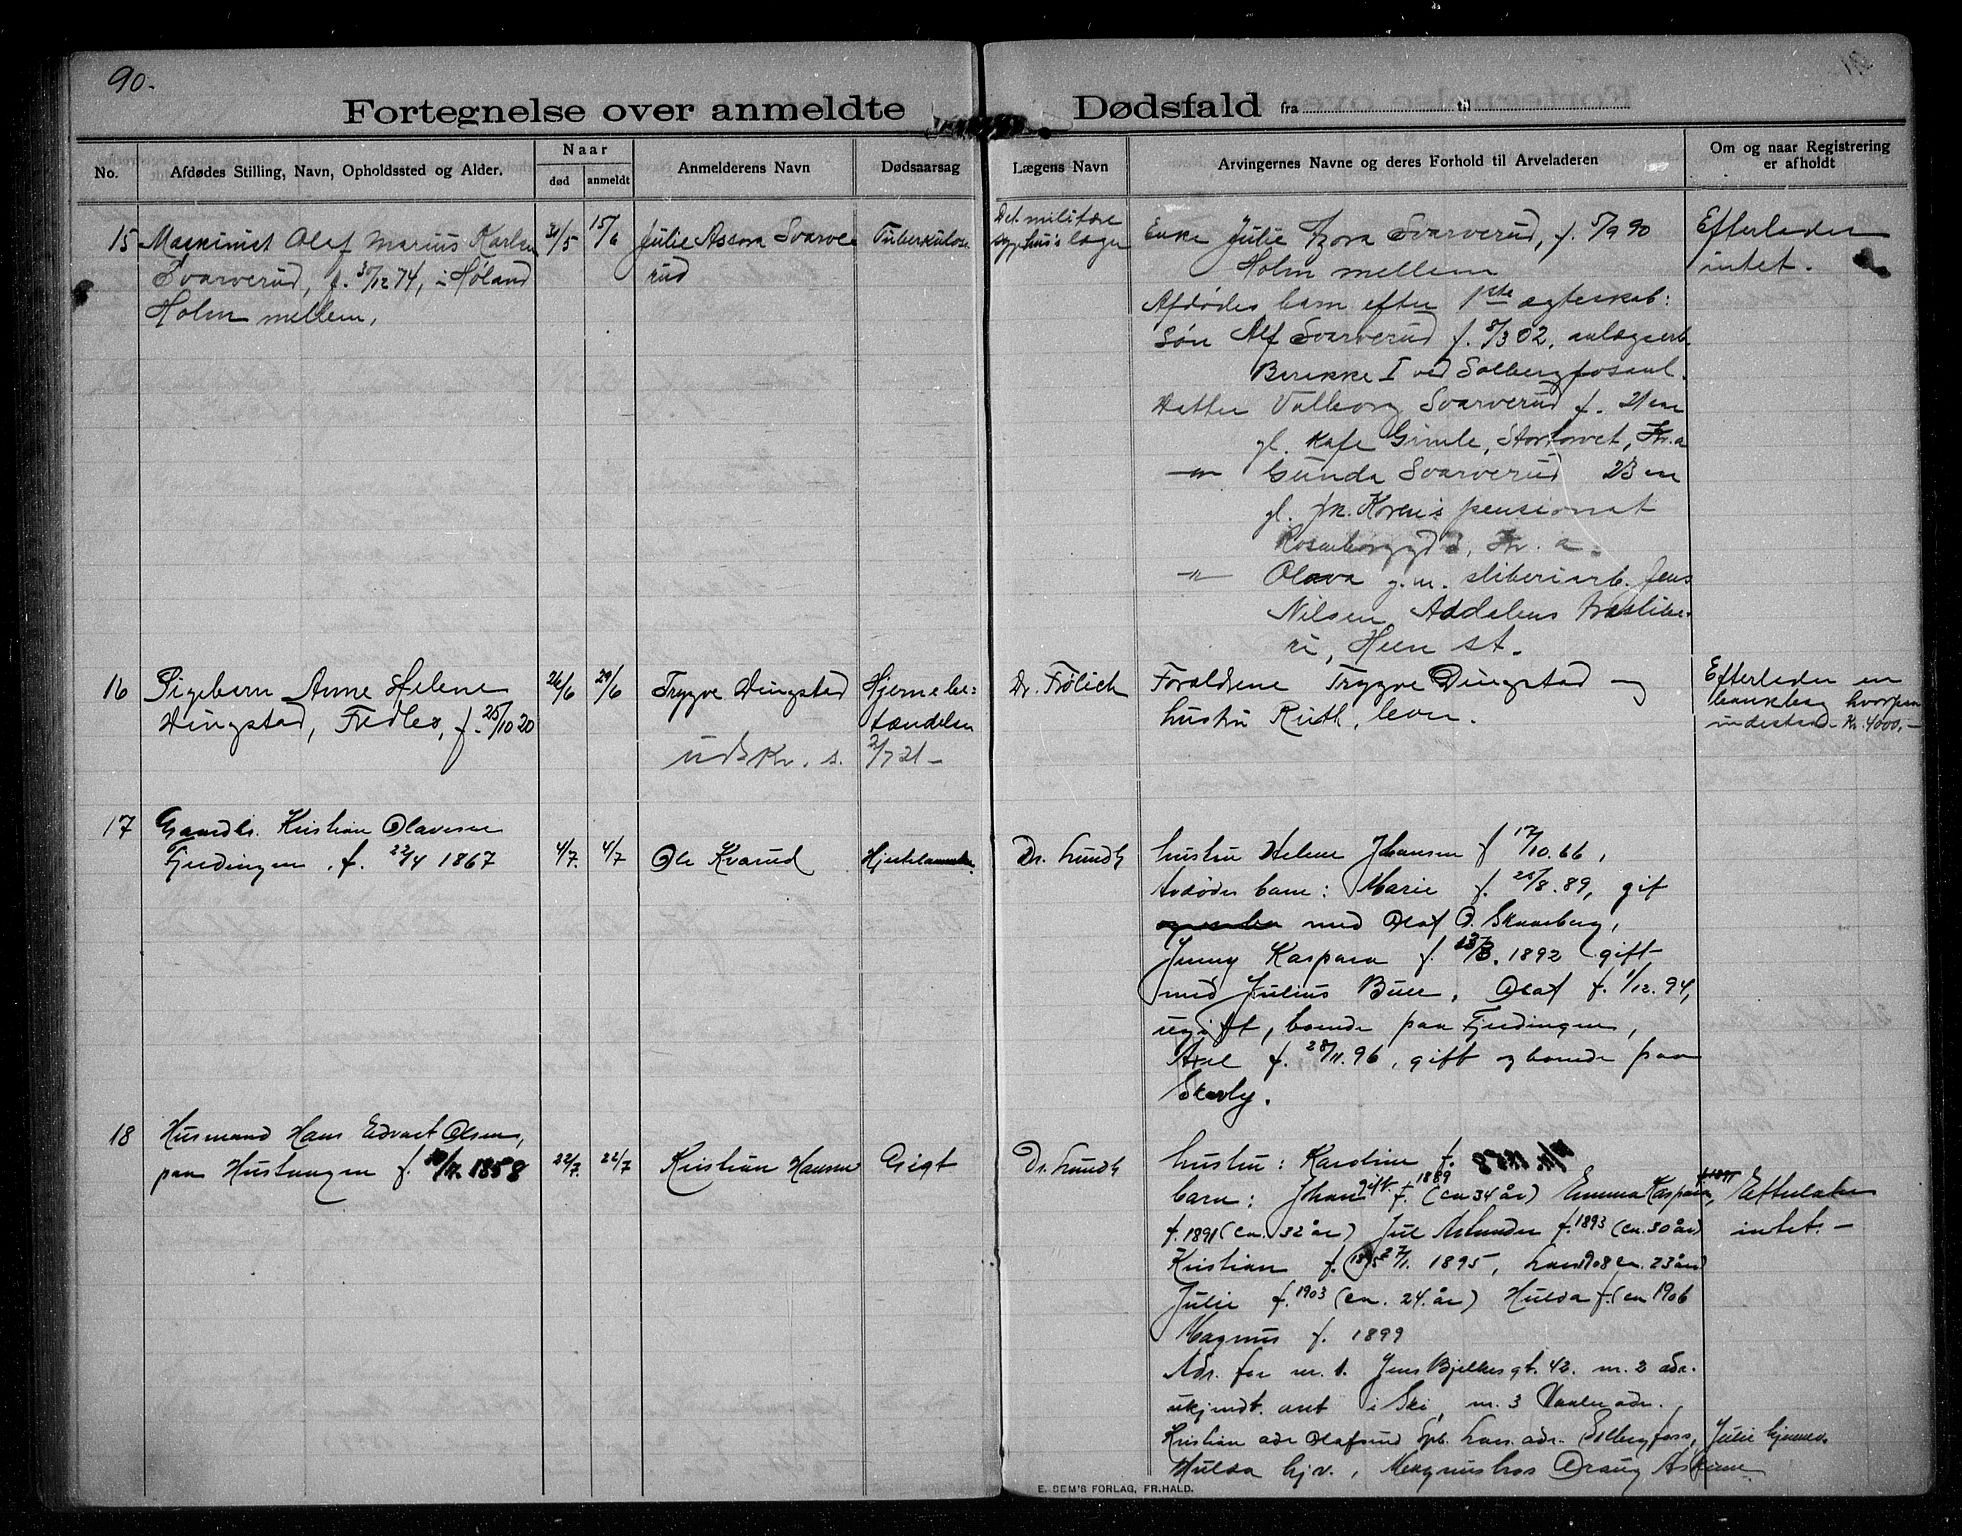 90.
Fortegnelse over anmeldte Dødsfald fra til
No.
Afdødes Stilling, Navn, Opholdssted og Alder.
Naar
død
anmeldt
Anmelderens Navn
Dødsaarsag
Lægens Navn
Arvingernes Navne og deres Forhold til Arveladeren
Om og naar Registrering
er afholdt
15 Maskinist Olaf Marius Karlsen
Svarverud, f. 30/12 74, i Høland
Holm mellem,
31/5
15/6
Julie Assora Svarve
rud
Tuberkulose
Det militære
sygehus's læger
Enke Julie Azora Svarverud, f. 5/9 90
Holm mellem
Afdødes barn efter 1ste ægteskab:
Søn Alf Svarverud f. 8/3 02, anlægsarb.
Berekke I ved Solbergfosanl.
Datter Valborg Svarverud f. 21 en
gl. Kafe Gimle, Stortorvet, Kr.a
—"— Gunda Svarverud 23 en
gl. frk. Koren's pensionat
Rosenborggt 3, Kr. a.
—"— Olava g.m. sliberiarb. Jens
Nilsen Addalens Træslibe-
ri, Heen st.
Efterlader
intet.
16 Pigebarn Anne Helene
Dingstad, Fredlex, f. 25/10 20
26/6
29/6
Trygve Dingstad
Hjernebe-
tændelse
udskr. s. 2/7 21 —
Dr. Følich
Foraldrene Trygve Dingstad og
hustru Ruth, lever.
Efterlader en
bankbog hvorpaa
indestaar Kr. 4000,-
17 Gaardbr. Kristian Olavesen
Fjeldingen, f. 22/4 1867
4/7.
4/7
Ole Kvarud
Hjertelammelse.
Dr. Lundh
hustru Helene Johansen f 17/10.66,
Avdødes barn: Marie f. 25/8.89, gift
med Olaf O. Skaaberg,
Jenny Kaspara f. 1892 gift
med Julius Buer, Olaf f. 1/12. 94,
ugift, boende paa Fjeldingen,
Axel f. 28/11. 96, gift og boende paa
Skovly.
18 Husmand Hans Edvart Olsen,
paa Hustangen f. 1858
22/7.
22/7
Kristian Hansen
Gigt
Dr. Lundh
hustru: Karoline f. 1858
barn: Johan gift f. 1889 (ca 34 år) Emma Kaspara,
f. 1891 (ca. 32 år) Jul f. 1893 (ca. 30 år)
Kristian f. 27/1. 1895, ca. 23 år
Julie f. 1903 (ca. 24. år) Hulda f. (ca 1906
Magnus f. 1899
Adr. for nr. 1. Jens Bjelkes gt. 42. nr. 2 adr.
ukjendt. ant i Ski, nr. 3 Vaaler adr.
Kristian adr Olafsrud Spb. adr. Solbergfoss, Julie hjemme.
Hulda hjv., Magnus hos Draug Askim
Efterlater
intet. —
E. SEM'S FORLAG, FR.HALD.